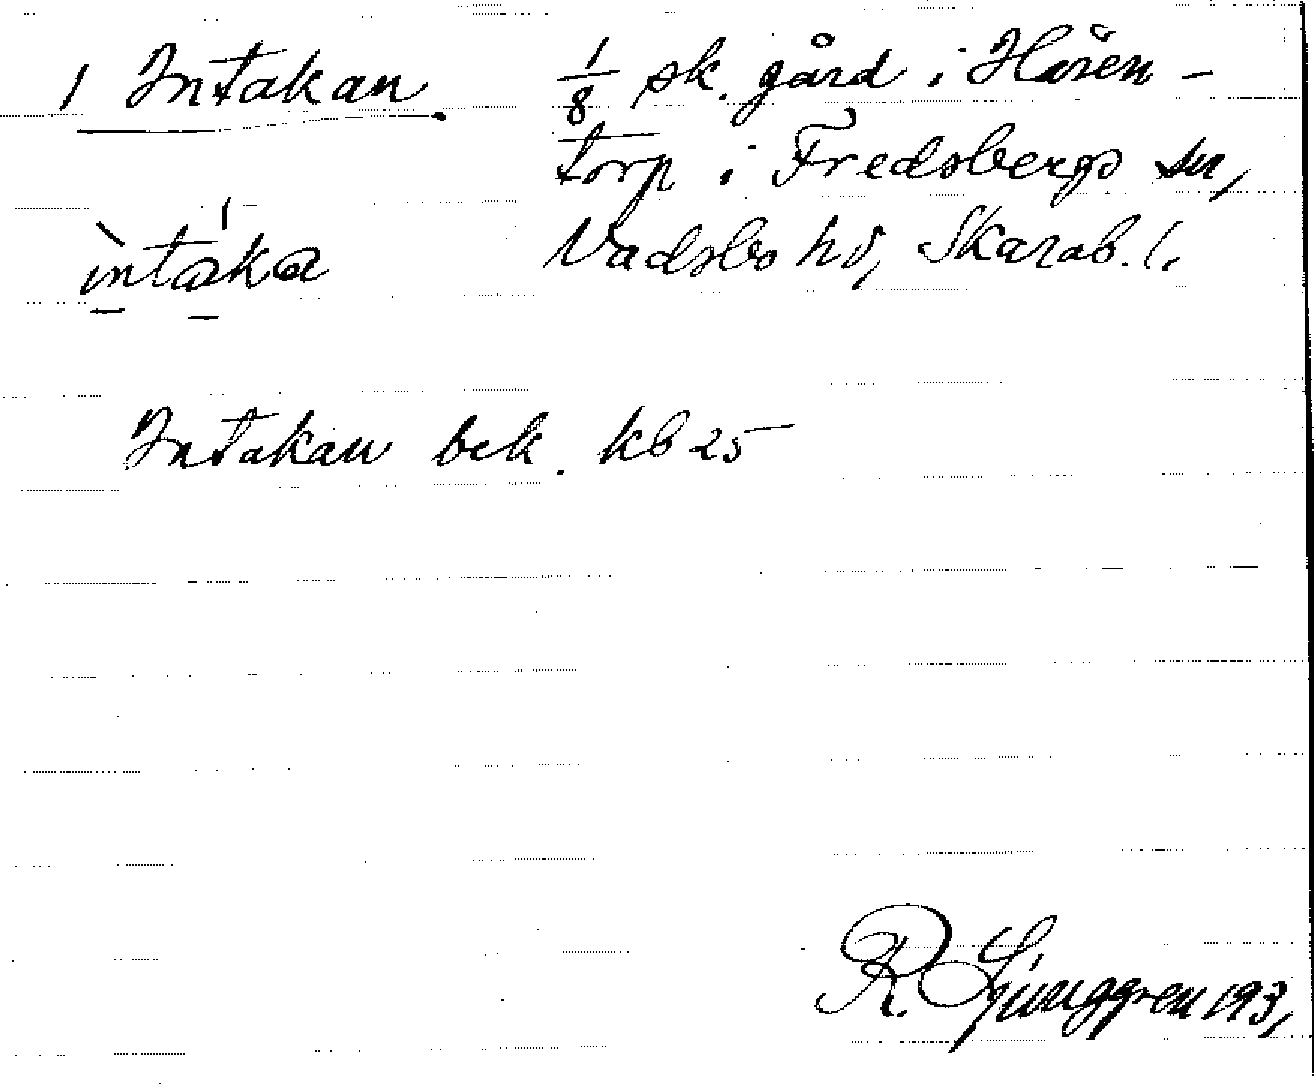 1 Intakan. 1/8 sk. gård i Håren-
torp i Fredsbergs sn,
ìntáka Vadsbo hd, Skarab. l.
Intakan bek. kb 25
R. Ljunggren 1931